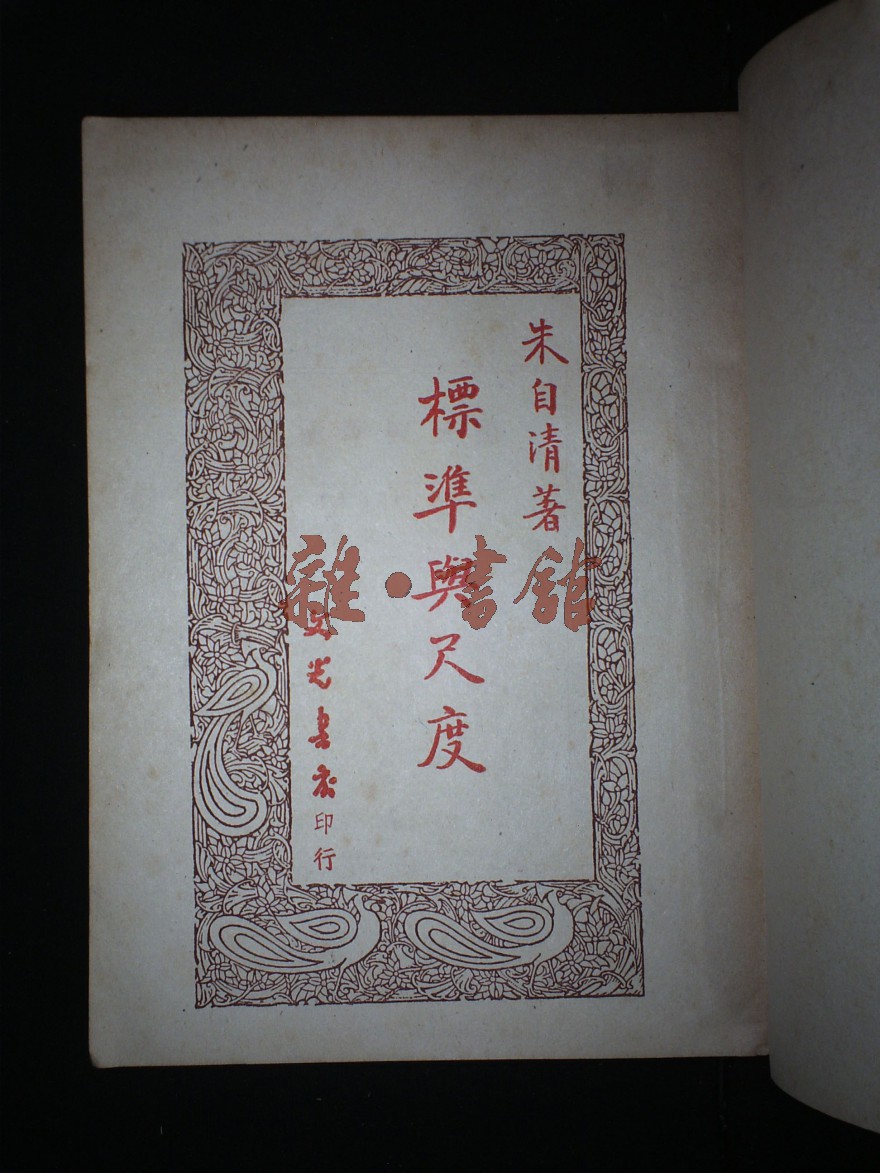 朱自清著
標準與尺度
文光書店印行
雜·書館